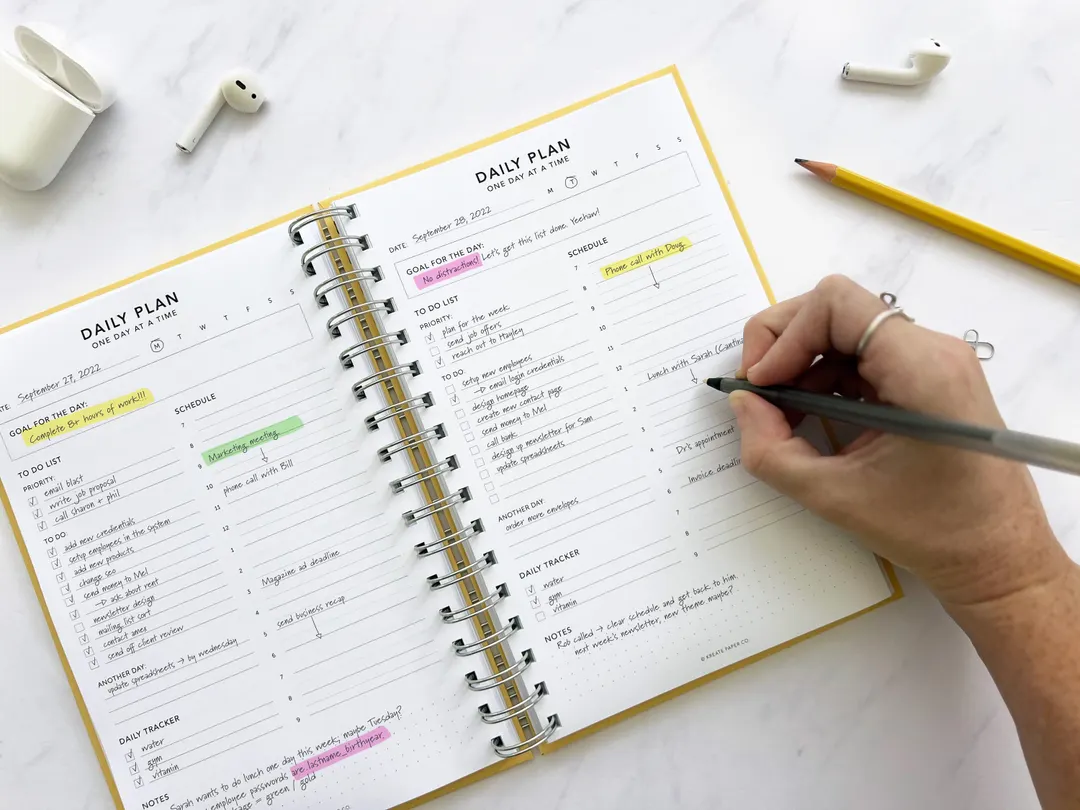 DAILY PLAN
ONE DAY AT A TIME
M T W T F S S
September 27, 2022
GOAL FOR THE DAY:
Complete 8r hours of work!!!
TO DO LIST
PRIORITY:
email blast
write job proposal
call sharon + phil
TO DO:
add new credentials
setup employees in the system
add new products
change seo
send money to Mel
→ ask about rent
newsletter design
mailing list sort
contact amex
send off client review
ANOTHER DAY:
update spreadsheets → by wednesday
DAILY TRACKER
water
gym
vitamin
NOTES
Sarah wants to do lunch one day this week, maybe Tuesday?
employee passwords are lastname_birthyear
= green / gold
SCHEDULE
7
8
9 Marketing meeting
10 phone call with Bill
11
12
1
2 Magazine ad deadline
3
4 send business recap
5
6
7
8
9
DAILY PLAN
ONE DAY AT A TIME
M T W T F S S
DATE: September 28, 2022
GOAL FOR THE DAY:
No distractions! Let's get this list done. Yeehaw!
TO DO LIST
PRIORITY:
plan for the week
send job offers
reach out to Hayley
TO DO:
setup new employees
→ email login credentials
design homepage
create new contact page
send money to Mel
call bank
design up newsletter for Sam
update spreadsheets
ANOTHER DAY:
order more envelopes
DAILY TRACKER
water
gym
vitamin
NOTES
Rob called → clear schedule and get back to him
next week's newsletter, new theme maybe?
SCHEDULE
7 Phone call with Doug
8
9
10
11
12 Lunch with Sarah (Cantina
1
2
3
4 Dr's appointment
5 Invoice
6
7
8
9
© KREATE PAPER CO.